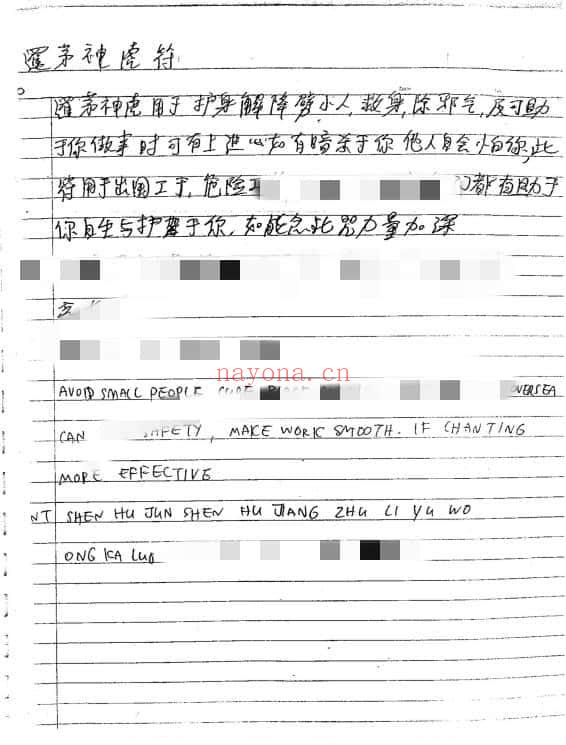 暹茅神虎符
暹茅神虎用于护身解降劈小人,救身,除邪气,及可助
于你做事时可有上进心如有暗杀于你他人自会怕你,此
符用于出国工于,危险工 都有助于
你自生与护驾于你,如能念此咒力量加深
nayona.cn
AVOID SMALL PEOPLE OVERSEA
CAN SAFETY, MAKE WORK SMOOTH. IF CHANTING
MORE EFFECTIVE
NT SHEN HU JUN SHEN HU JIANG ZHU LI YU WO
ONG KA LUO